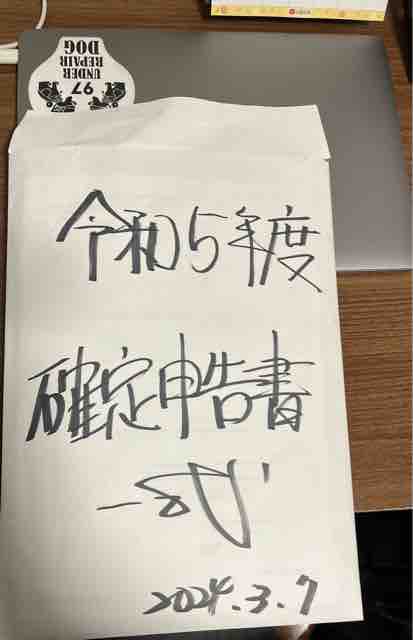 UNDER
REPAIR
DOG
97
令和5年度
確定申告書
一式
2024.3.7